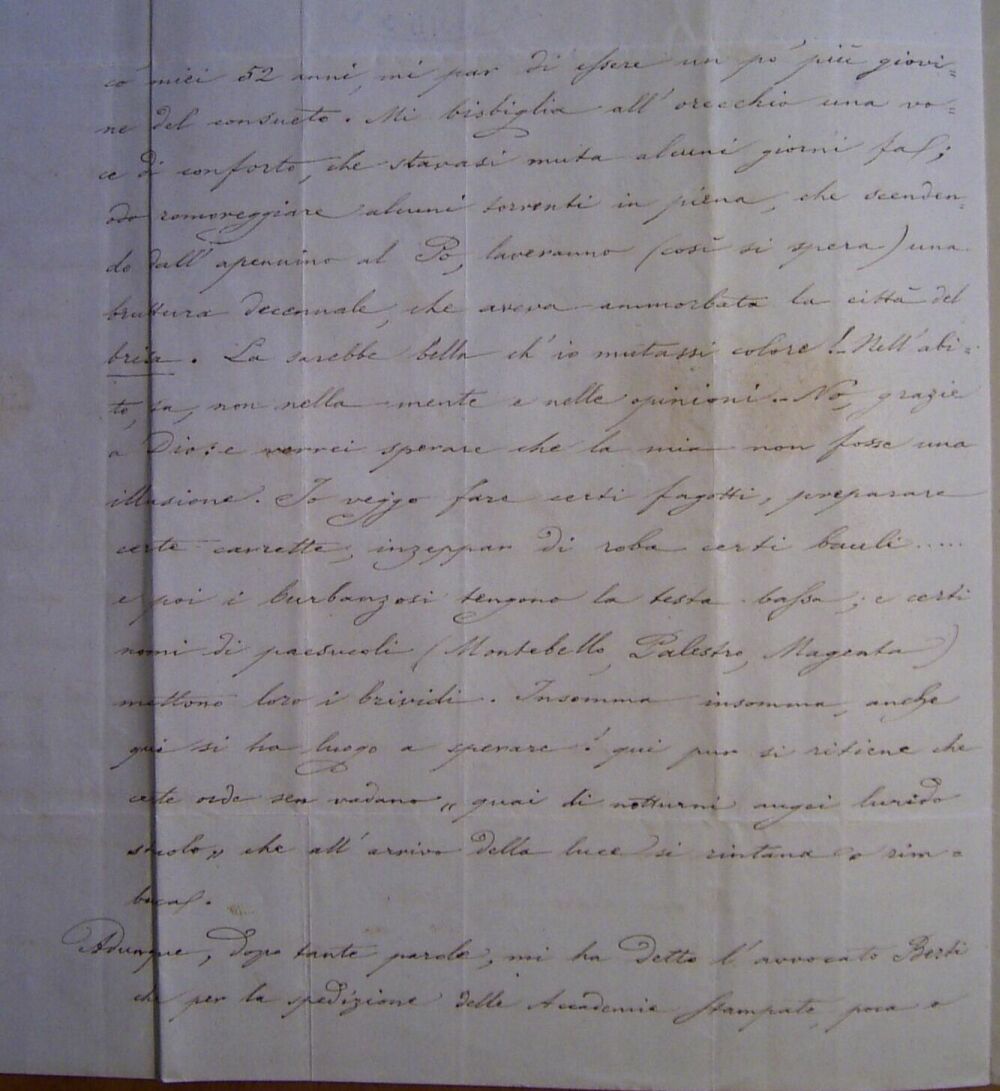 co' miei 52 anni, mi par di essere un po' più giovi=
ne del consueto. Mi bisbiglia all' orecchio una vo=
ce di conforto, che stavasi muta alcuni giorni fa;
odo romoreggiare alcuni torrenti in piena, che scenden=
do dall' apennino al Po, laveranno (così si spera) una
bruttura decennale, che aveva ammorbata la città del
brisa. La sarebbe bella ch' io mutassi colore! Nell' abi=
to, sa, non nella mente e nelle opinioni. No, grazie
a Dio: e vorrei sperare che la mia non fosse una
illusione. Io veggo fare certi fagotti, preparare
certe carrette, inzeppar di roba certi bauli.....
e poi i burbanzosi tengono la testa bassa; e certi
nomi di paesucoli (Montebello, Palestro, Magenta)
mettono loro i brividi. Insomma insomma, anche
qui si ha luogo a sperare! qui pur si ritiene che
certe orde sen vadano „ quai di notturni augei lurido
stuolo „ che all' arrivo della luce si rintana o rim=
buca.
Adunque, dopo tante parole, mi ha detto l' avvocato Berti
che per la spedizione delle Accademie stampate, poca o